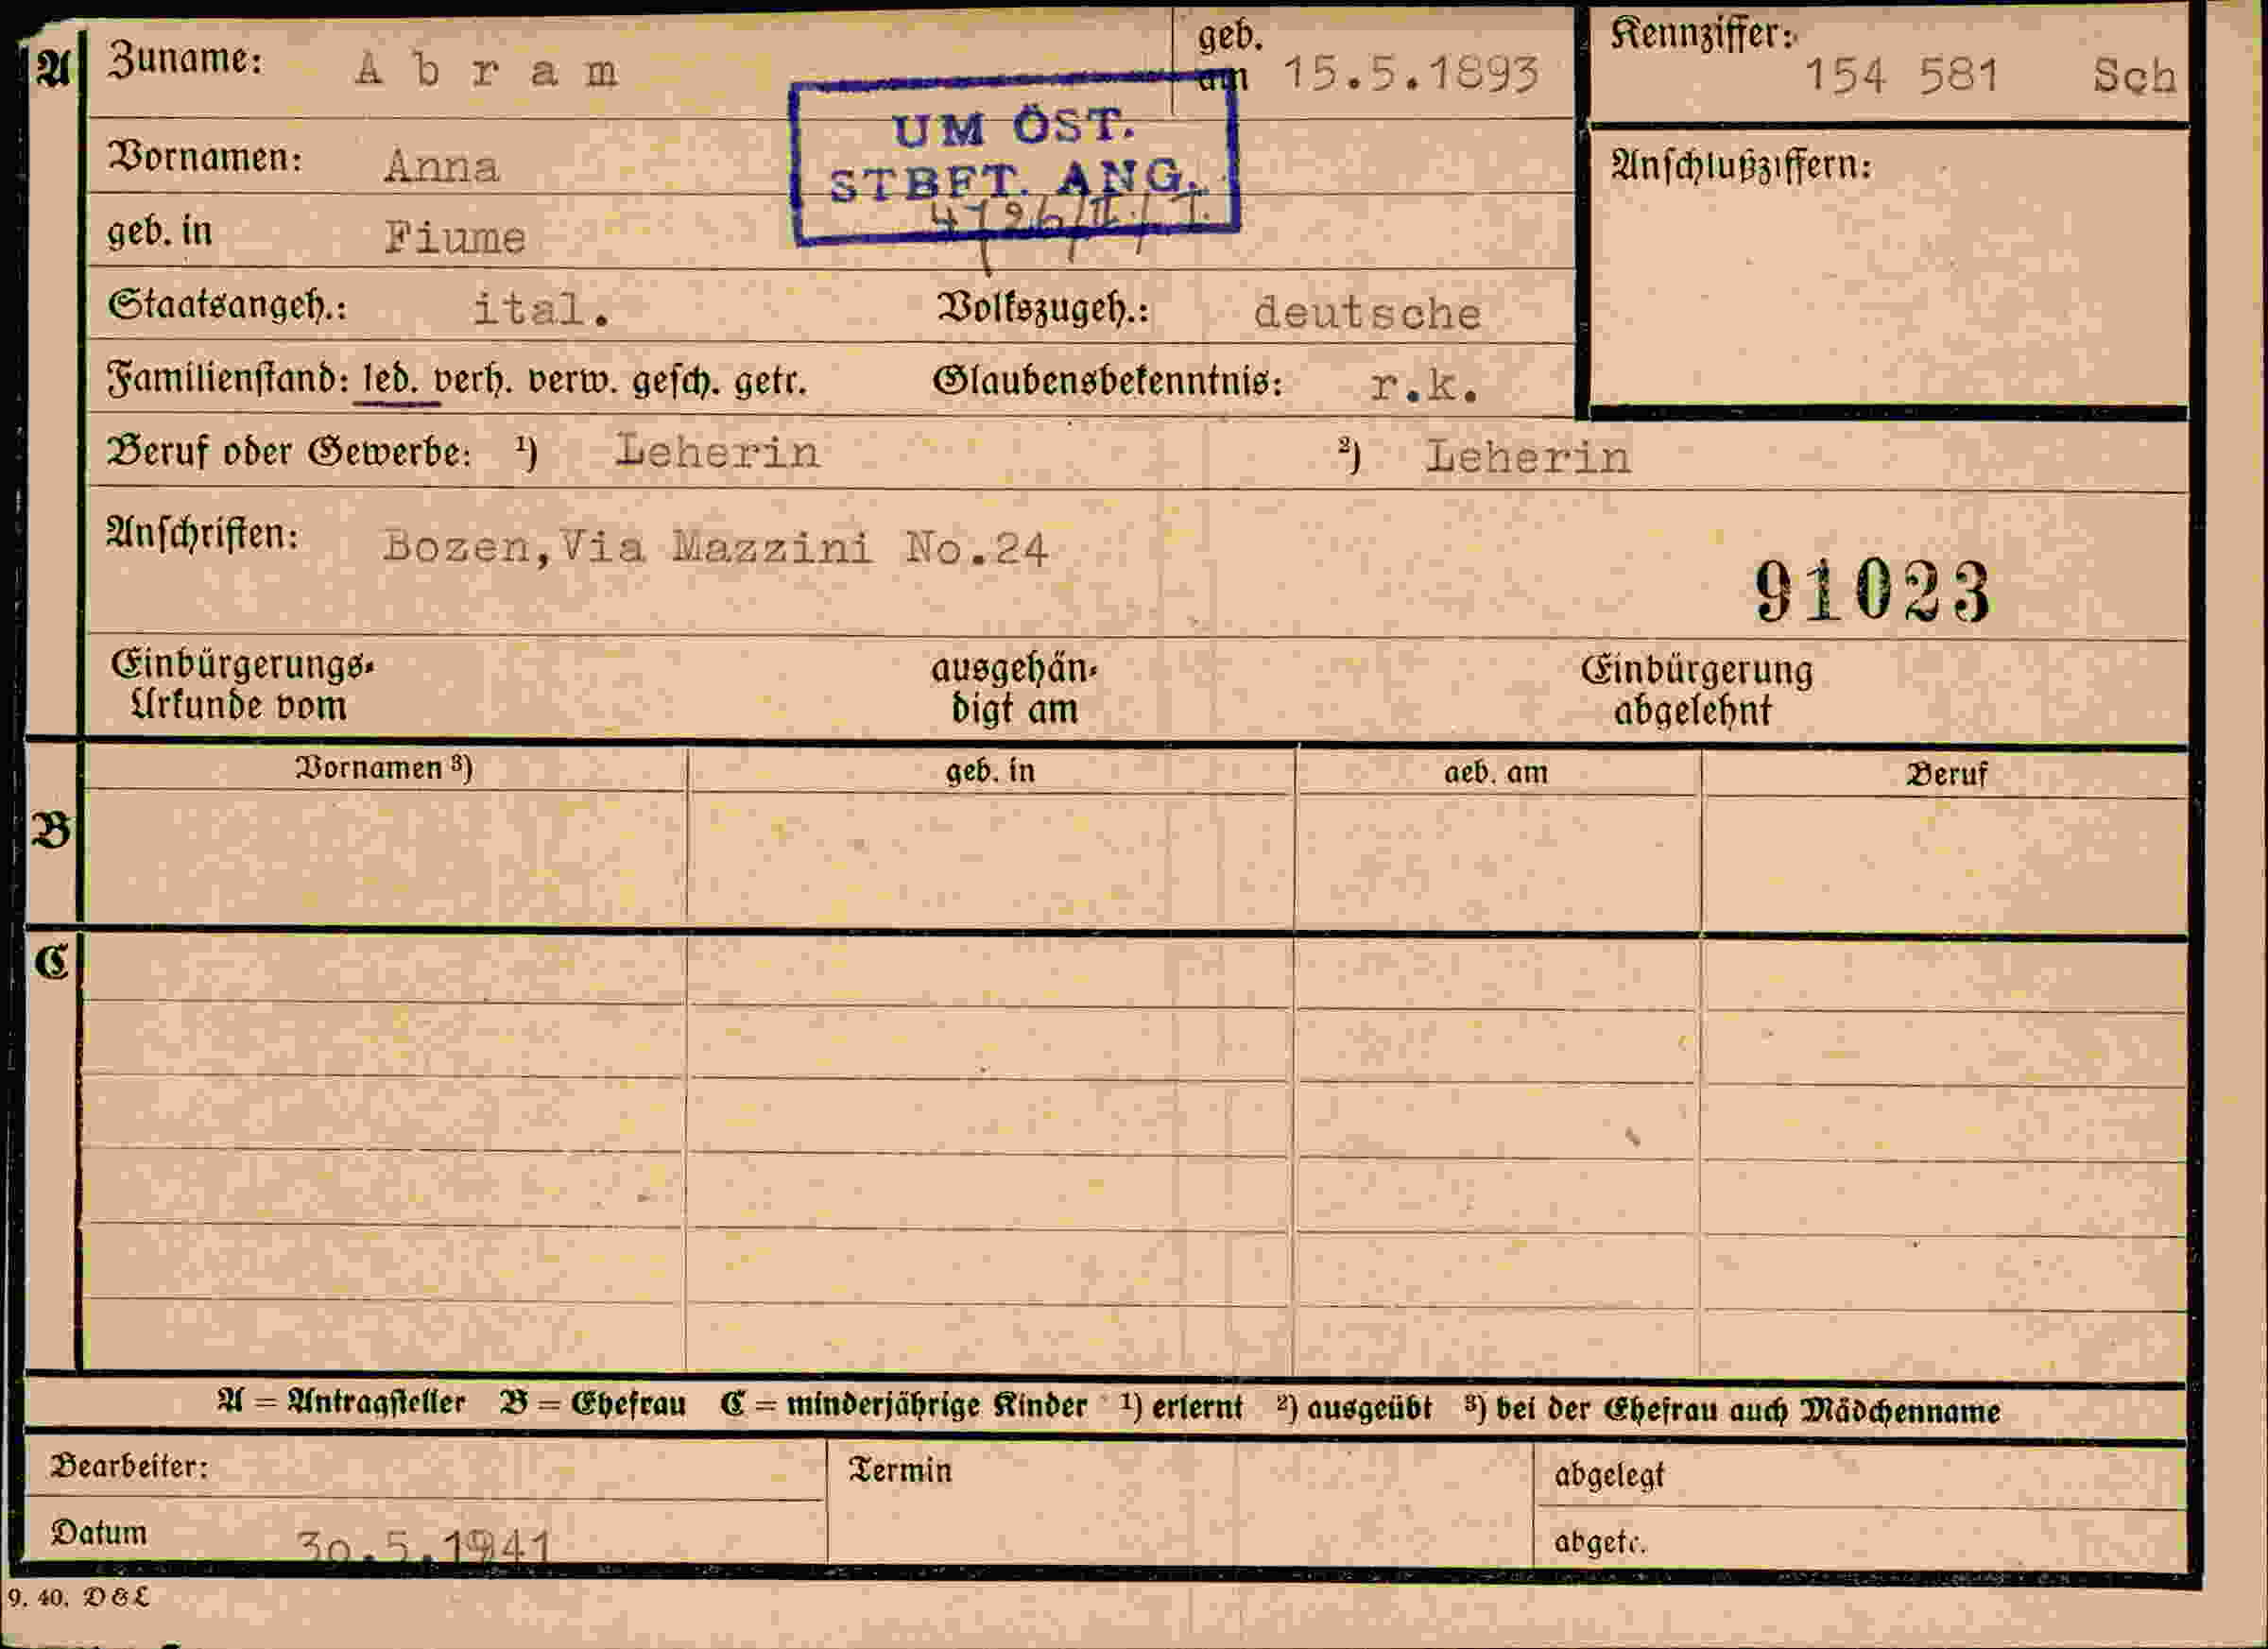 A Zuname: Abram geb. am 15.5.1893 Kennziffer: 154 581 Sch
UM ÖST.
STBFT. ANG.
Vornamen: Anna Anschlußziffern:
geb. in Fiume
Staatsangeh.: ital. Volkszugeh.: deutsche
Familienstand: led. verh. verw. gesch. getr. Glaubensbekenntnis: r.k.
Beruf oder Gewerbe: ¹) Leherin ²) Leherin
Anschriften: Bozen, Via Mazzini No.24
91023
Einbürgerungs- ausgehän- Einbürgerung
Urkunde vom digt am abgelehnt
Vornamen ³) geb. in geb. am Beruf
B
C
A = Antragsteller B = Ehefrau C = minderjährige Kinder ¹) erlernt ²) ausgeübt ³) bei der Ehefrau auch Mädchenname
Bearbeiter: Termin abgelegt
Datum 30.5.1941 abgetr.
9. 40. D & L